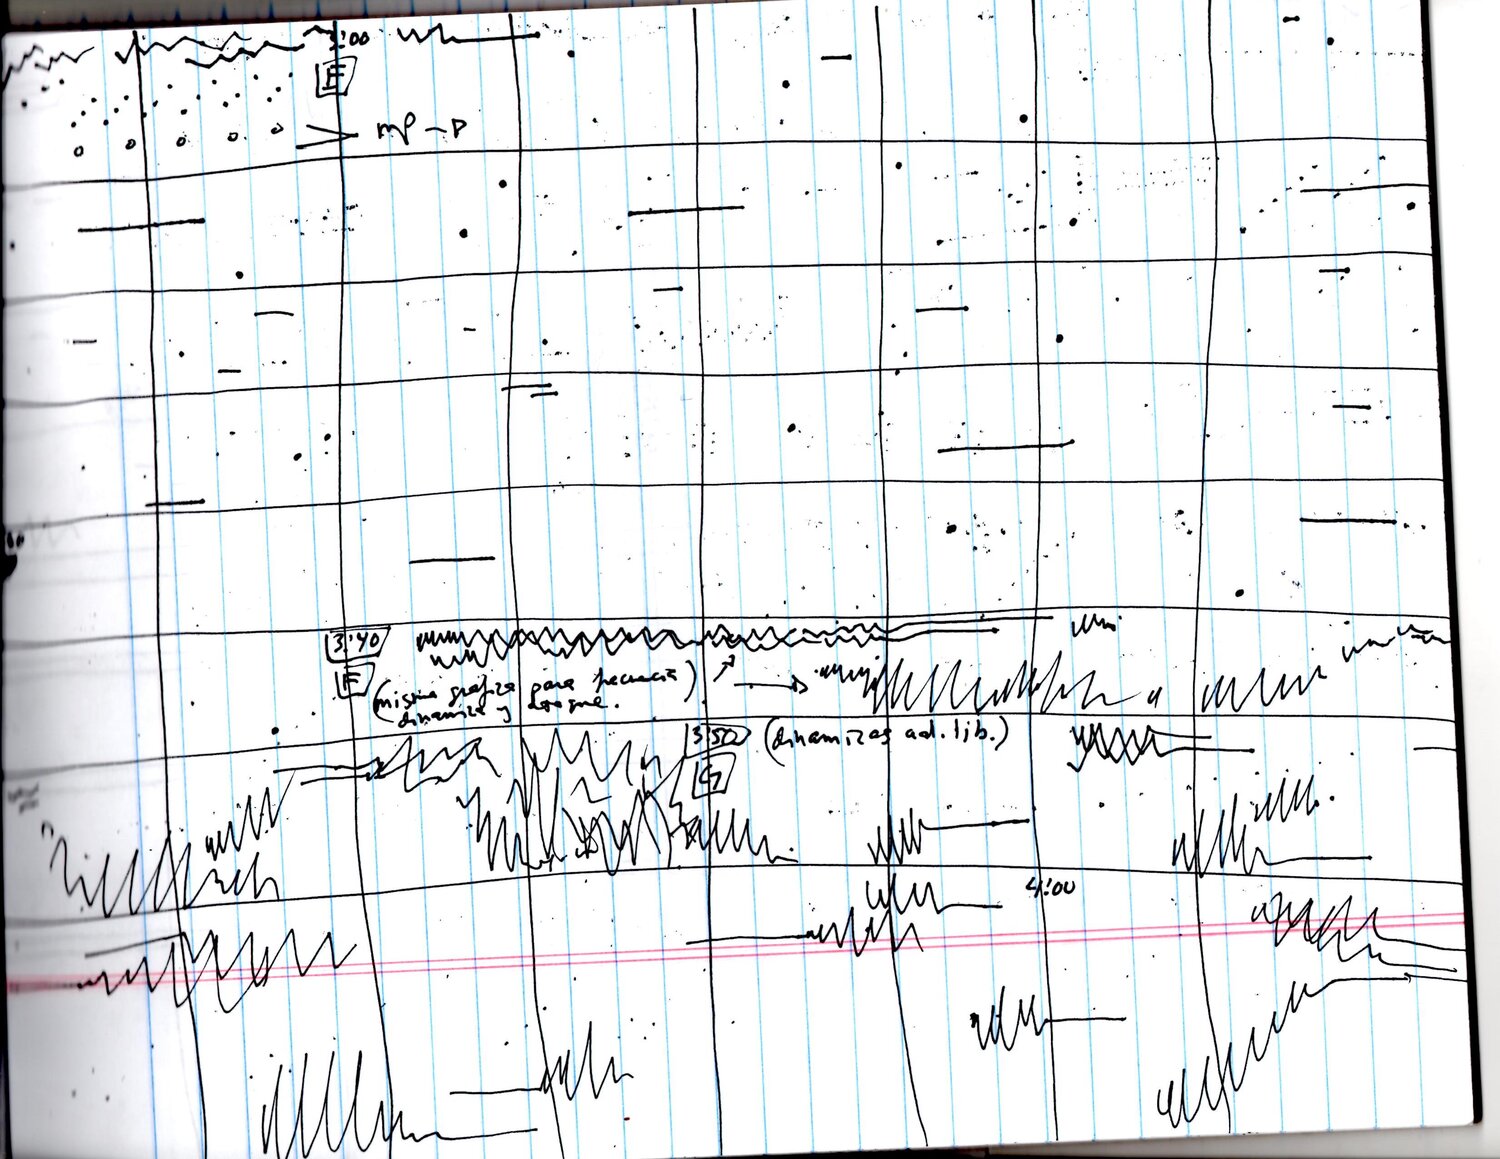 3:00
E
mp - p
3:40
F
(misma grafica para frecuencia)
dinamica y ataque.
3:50 (dinamicas ad. lib.)
G
4:00